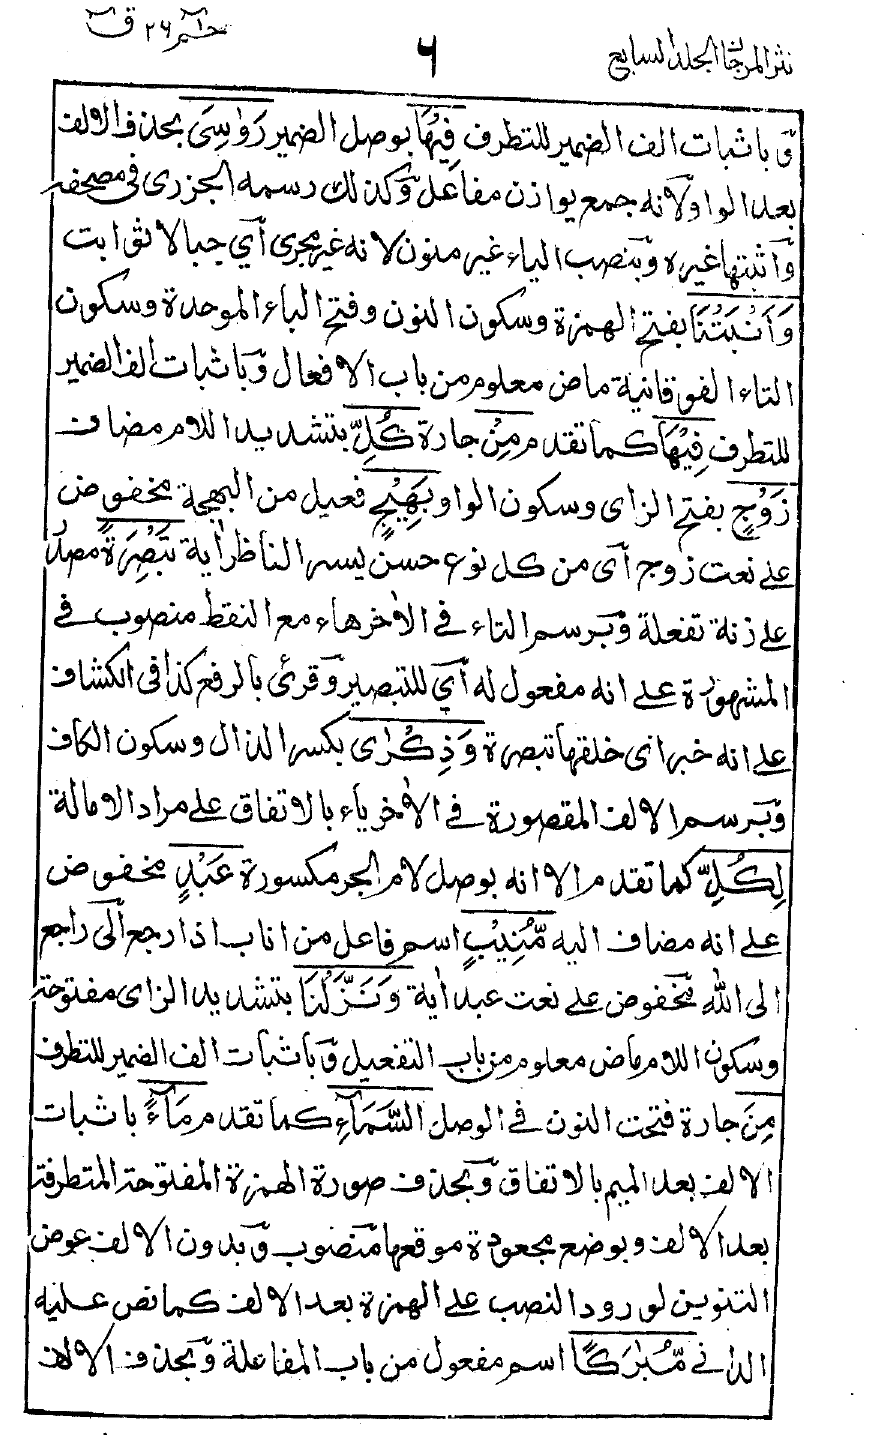 نثر المرجان الجلد السابع
٦
حٰم ٢٦ قٓ
وباثبات الف الضمير للتطرف فِيْهَا بوصل الضمير رَوٰسِيَ بحذف الالف
بعد الواو لانه جمع يوازن مفاعل وكذلك رسمه الجزرى فى مصحفه
وأثبتها غيره وبنصب الياء غير منون لانه غير مجرى أي جبالا ثوابت
وَأَنْبَتْنَا بفتح الهمزة وسكون النون وفتح الباء الموحدة وسكون
التاء الفوقانية ماض معلوم من باب الافعال وباثبات الف الضمير
للتطرف فِيْهَا كما تقدم مِنْ جارة كُلِّ بتشديد اللام مضاف
زَوْجٍ بفتح الزاى وسكون الواو بَهِيْجٍ فعيل من البهجة مخفوض
على نعت زوج أى من كل نوع حسن يسر الناظر أية تَبْصِرَةً مصدر
على زنة تفعلة وبرسم التاء فى الأخر هاء مع النقط منصوب فى
المشهورة على انه مفعول له أي للتبصير وقرئ بالرفع كذا فى الكشاف
على انه خبر اى خلقها تبصرة وَذِكْرٰى بكسر الذال وسكون الكاف
وبرسم الالف المقصورة فى الأخر ياء بالاتفاق على مراد الامالة
لِكُلِّ كما تقدم الا انه بوصل لام الجر مكسورة عَبْدٍ مخفوض
على انه مضاف اليه مُّنِيْبٍ اسم فاعل من اناب اذا رجع ألى راجع
الى الله مخفوض على نعت عبد أية وَنَزَّلْنَا بتشديد الزاى مفتوحة
وسكون اللام ماض معلوم من باب التفعيل وباثبات الف الضمير للتطرف
مِنَ جارة فتحت النون فى الوصل السَّمَآءِ كما تقدم مَآءً باثبات
الالف بعد الميم بالاتفاق وبحذف صورة الهمزة المفتوحة المتطرفة
بعد الالف وبوضع مجعودة موقعها منصوب وبدون الالف عوض
التنوين لورود النصب على الهمزة بعد الالف كما نص عليه
الدانى مُّبٰرَكًا اسم مفعول من باب المفاعلة وبحذف الالف